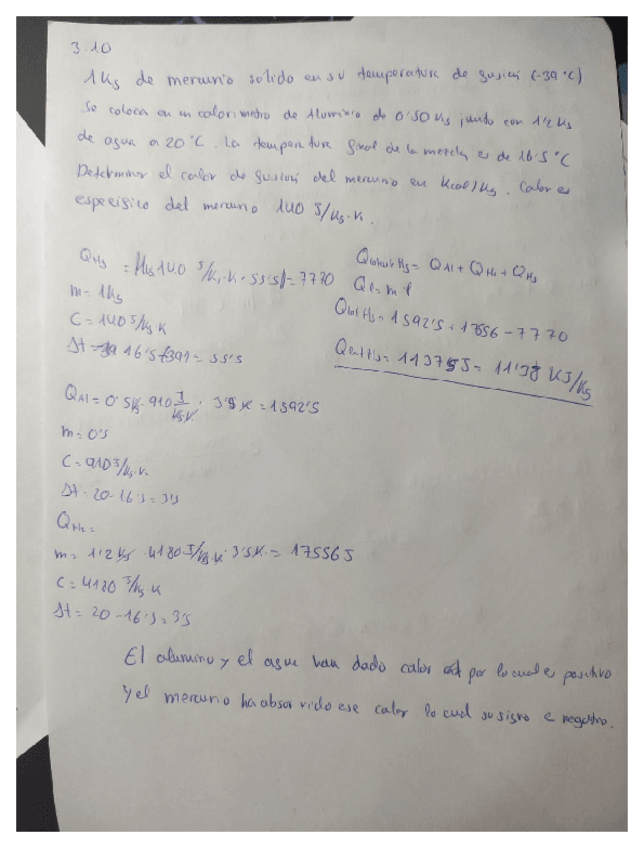 3.10
1Kg de mercurio solido en su temperatura de fusión (-39 °C)
se coloca en un calorimetro de Aluminio de 0'50 Kg junto con 1'2 Kg
de agua a 20 °C. La temperatura final de la mezcla es de 16'5 °C
Determinar el calor de fusion del mercurio en Kcal/Kg. Calor es
especifico del mercurio 140 J/Kg·K.
QHg = 1Kg 140 J/Kg·K · 55'5K = 7770
m = 1Kg
C = 140 J/Kg K
Δt = 16'5-(-39) = 55'5
Qlatente Hg = QAl + QH2 + QHg
Ql = m·l
Qlat Hg = 1592'5 + 17556 - 7770
Qlat Hg = 11379J = 11'38 KJ/Kg
QAl = 0'5Kg · 910 J/Kg·K · 3'5 K = 1592'5
m = 0'5
C = 910 J/Kg·K
Δt = 20-16'5 = 3'5
QH2 =
m = 1'2 Kg · 4180 J/Kg·K · 3'5K = 17556 J
C = 4180 J/Kg·K
Δt = 20-16'5 = 3'5
El aluminio y el agua han dado calor por lo cual es positivo
y el mercurio ha absorvido ese calor lo cual su signo e negativo.